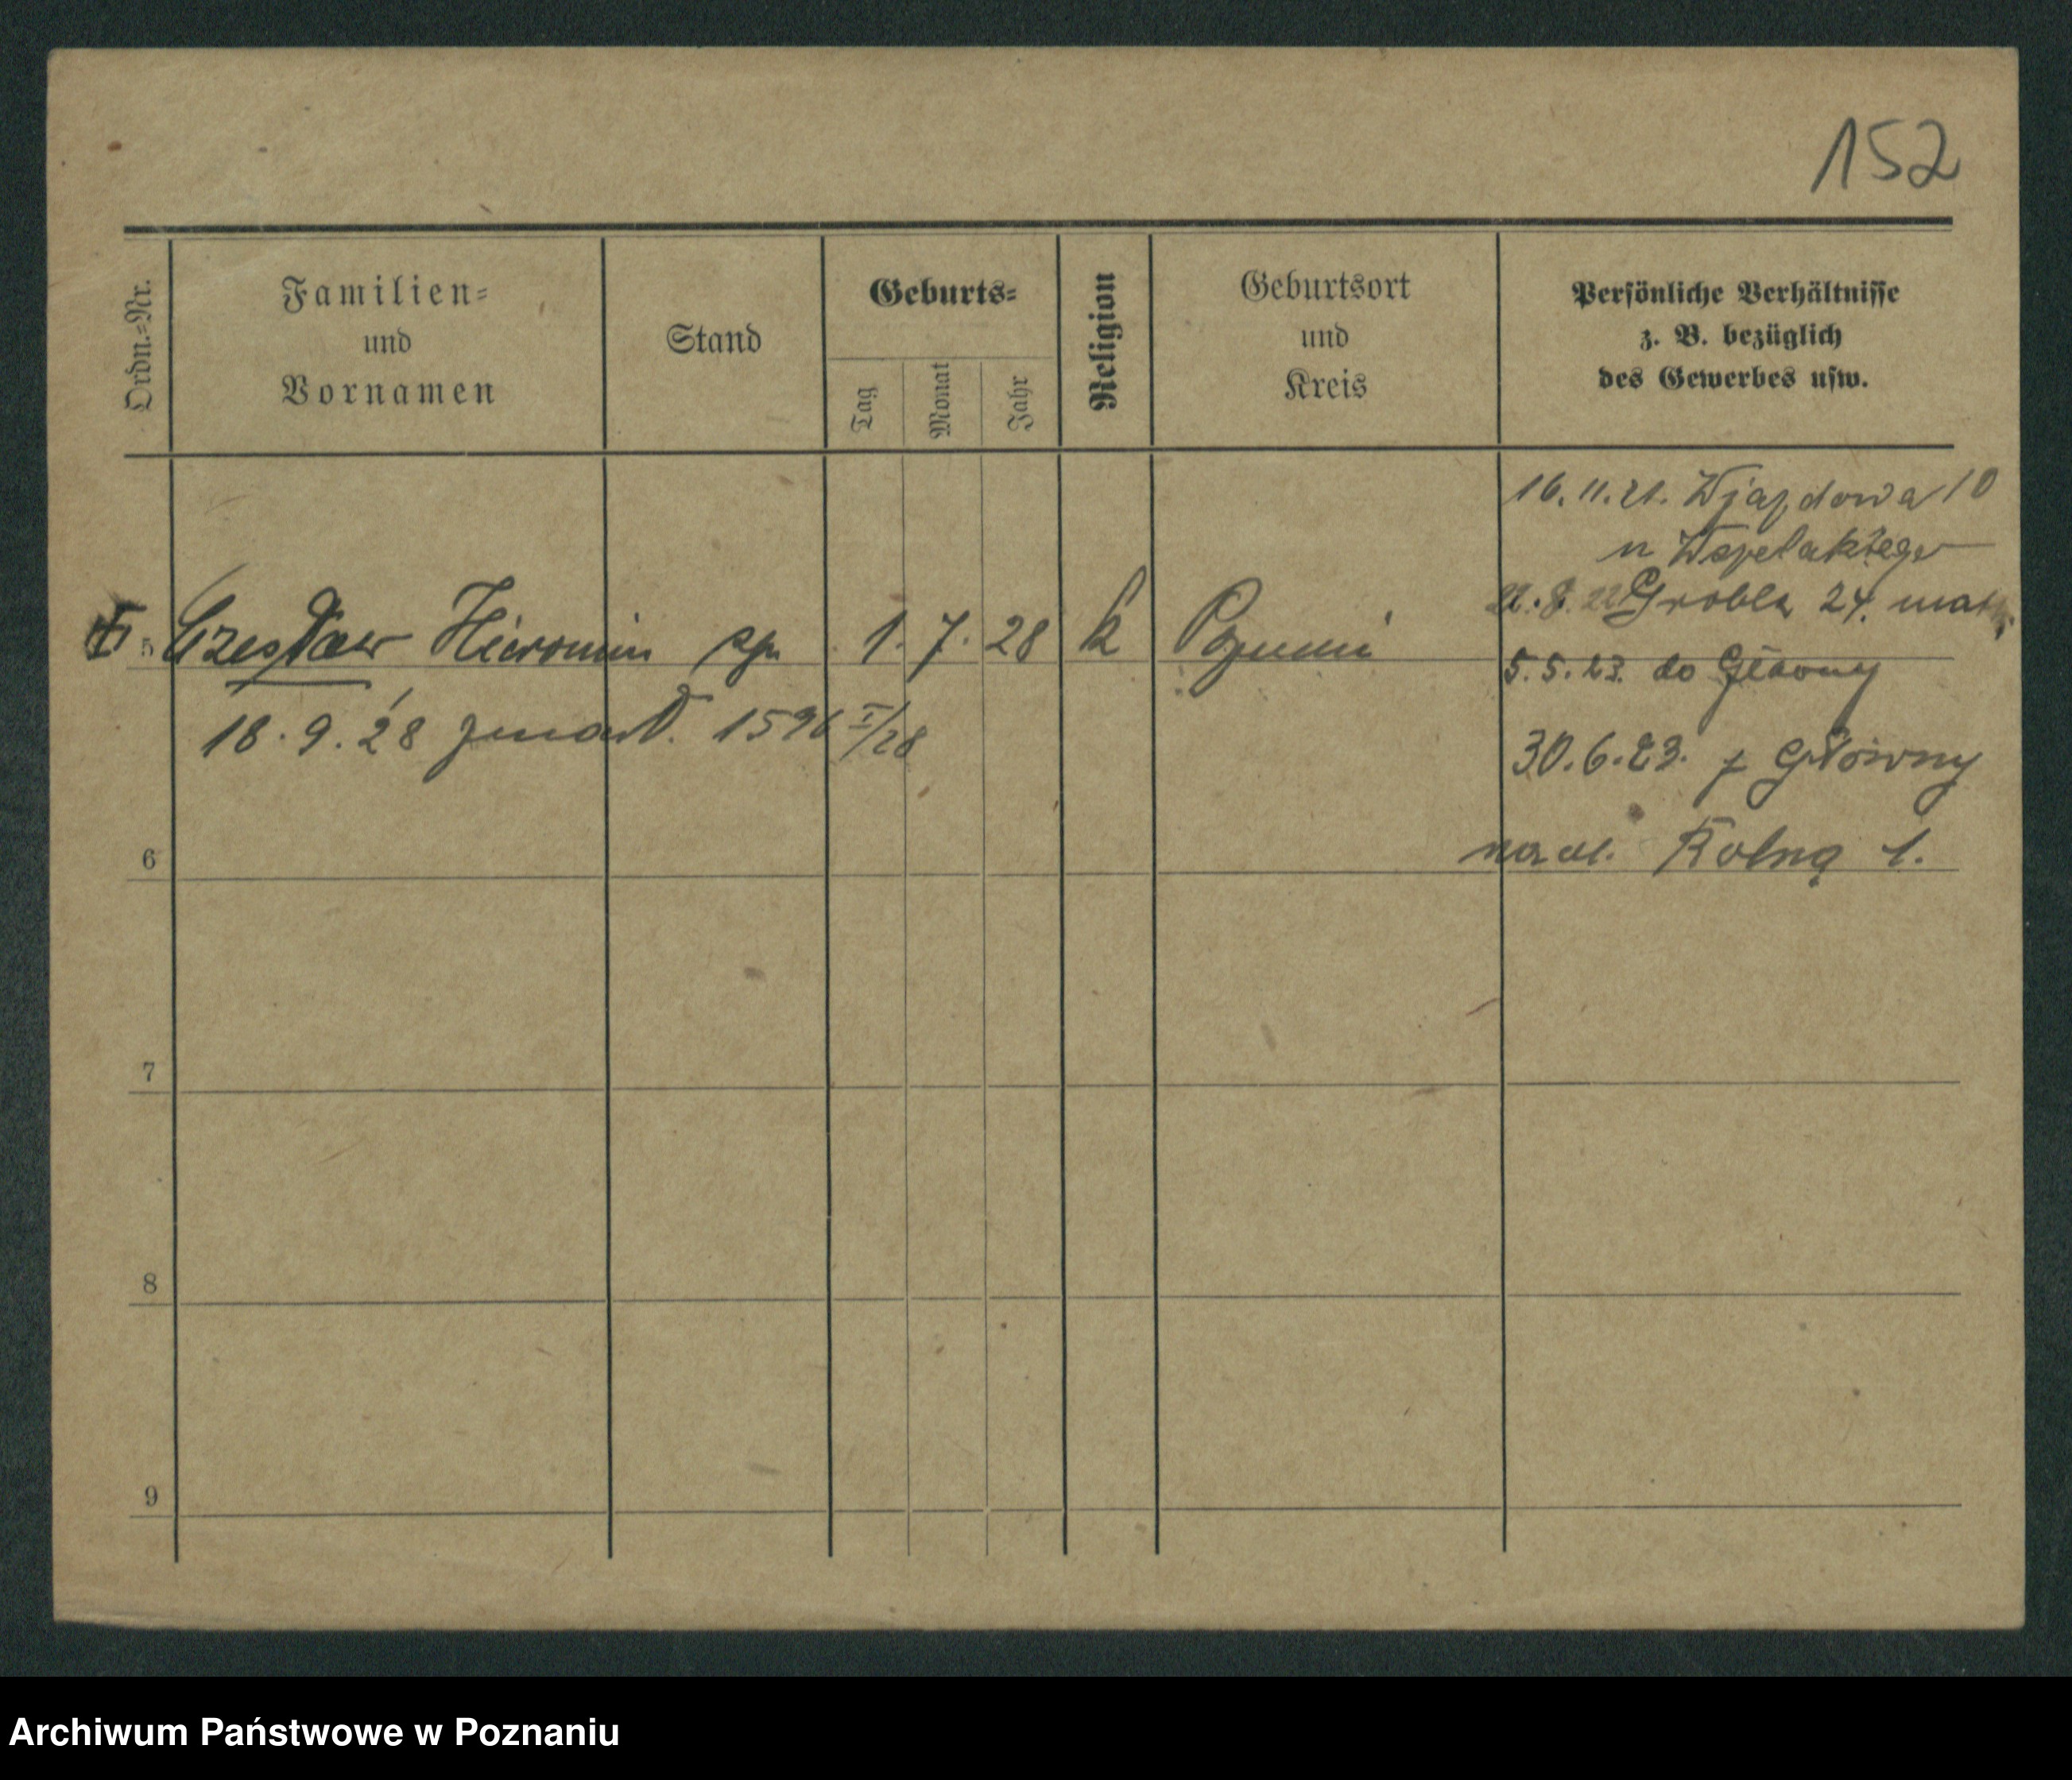 152
Ordn.=Nr.
Familien=
und
Vornamen
Stand
Geburts=
Tag
Monat
Jahr
Religion
Geburtsort
und
Kreis
Persönliche Verhältnisse
z. B. bezüglich
des Gewerbes usw.
16.11.21. Wjazdowa 10
u
8. 22 Grobla 24.
5 Czesław Hieronim syn 1. 7. 28 k Poznań
5.5.23. do Główny
18.9.28 zmarł. 1596 I/28
30.6.23. z Główny
6
na ul. Rolną 1.
7
8
9
Archiwum Państwowe w Poznaniu